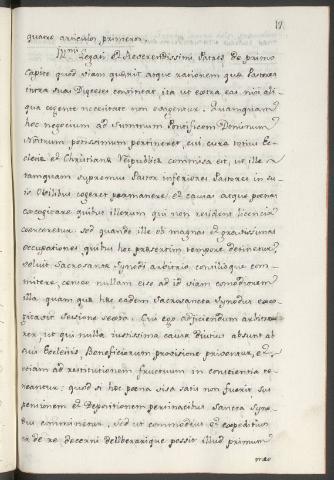 17.
quatuor articulos primores.
Ill.mi Legati et Reverendissimi Patres De primo
Capite quod viam quærit atque rationem qua Pastores
intra suas Dioeceses contineat, ita ut extra eas nisi ali-
qua cogente necessitate non evagentur. Quamquam
hoc negocium ad Summum Pontificem Dominum
Nostrum potissimum pertineret, cui cura totius Ec-
clesiæ et Christianæ Reipublicæ commissa est, ut ille
tamquam supremus Pastor inferiores Pastores in su-
is Ovilibus cogeret permanere, et causas atque poenas
excogitare quibus illorum qui non resident licencia
coerceretur. Sed quando ille ob magnas et gravissimas
occupationes quibus hoc præsertim tempore detinetur
voluit Sacrosanctæ Synodi arbitrio, consilioque com-
mittere, censeo nullam esse ad id viam commodiorem
illa quam quæ hæc eadem Sacrosancta Synodus
Sessione sexta. Cui ego adjiciendum
ut qui nulla iustissima causa Diutius absunt ab
suis Ecclesiis, Beneficiorum provisione priventur, et
etiam ad restitutionem fructuum in conscientia te-
neantur; quod si hæc poena visa satis non fuerit sus-
pensionem et Depositionem pertinacibus Sancta Syno-
dus comminetur, sed ut commodius et expeditius
ea de re decerni deliberarique possit illud primum